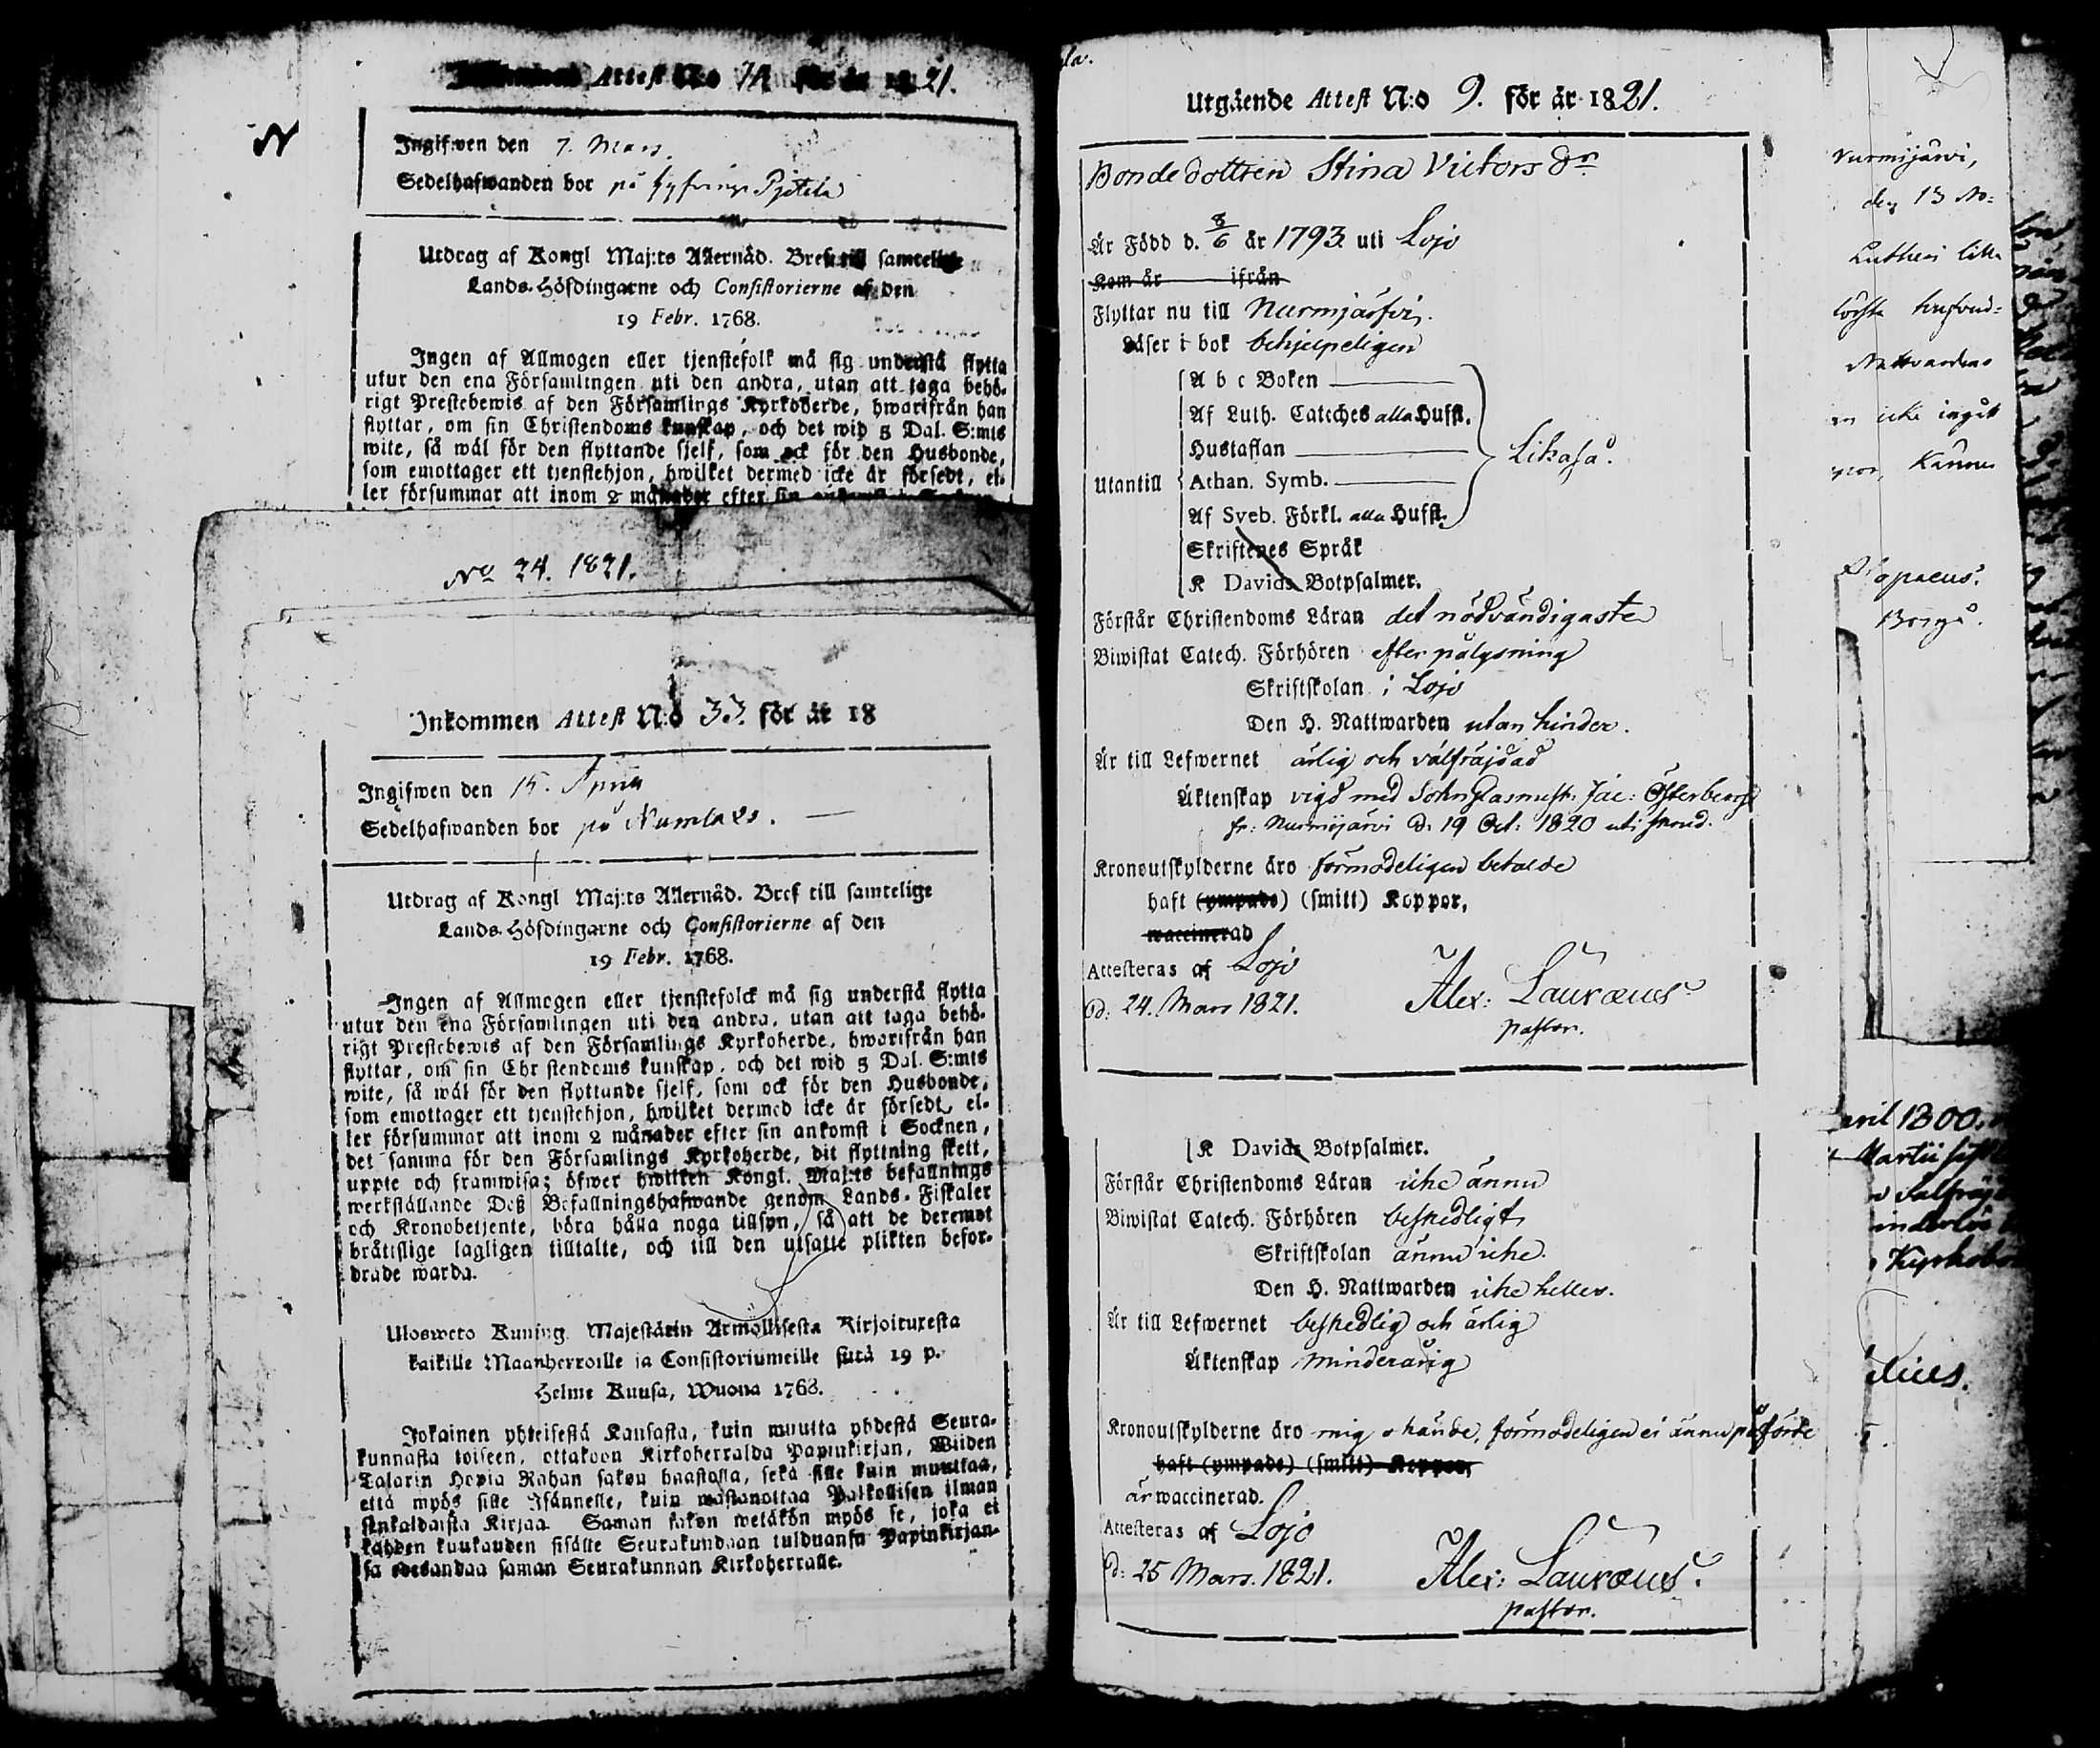 Attest N:o 14 för år 1821.
Ingifwen den 7. Mars.
Sedelhafwanden bor på
Utdrag af Kongl Maj:ts Allernåd. Bref till samtelige
Lands-Höfdingarne och Consistorierne af den
19 Febr. 1768.
Ingen af Allmogen eller tjenstefolk må sig understå flytta
utur den ena Församlingen uti den andra, utan att taga behö-
rigt Prestebewis af den Församlings Kyrkoherde, hwarifrån han
flyttar, om sin Christendoms kunskap, och det wid 5 Dal. S:mts
wite, så wäl för den flyttande sjelf, som ock för den Husbonde,
som emottager ett tjenstehjon, hwilket dermed icke är försedt, el-
ler försummar att inom 2 månader efter sin
No 24. 1821.
Inkommen Attest N:o 33. för år 18
Ingifwen den 15. April
Sedelhafwanden bor på Numlax.
Utdrag af Kongl Maj:ts Allernåd. Bref till samtelige
Lands-Höfdingarne och Consistorierne af den
19 Febr. 1768.
Ingen af Allmogen eller tjenstefolck må sig understå flytta
utur den ena Församlingen uti den andra, utan att taga behö-
rigt Prestebewis af den Församlings Kyrkoherde, hwarifrån han
flyttar, om sin Christendoms kunskap, och det wid 5 Dal. S:mts
wite, så wäl för den flyttande sjelf, som ock för den Husbonde,
som emottager ett tjenstehjon, hwilket dermed icke är försedt, el-
ler försummar att inom 2 månader efter sin ankomst i Socknen,
det samma för den Församlings Kyrkoherde, dit flyttning skett,
uppte och framwisa; öfwer hwilken Kongl. Maj:ts befallnings
werkställande Deß Befallningshafwande genom Lands-Fiskaler
och Kronobetjente, böra hålla noga tillsyn, så att de deremot
brättslige lagligen tilltalte, och till den utsatte plikten befor-
drade warda.
Ulosweto Kuning. Majestätin Armollisesta Kirjoituxesta
kaikille Maanherroille ja Consistoriumeille siitä 19 p.
Helme Kuusa, Wuona 1768.
Jokainen yhteisestä Kansasta, kuin muutta yhdestä Seura-
kunnasta toiseen, ottakoon Kirkoherralda Papinkirjan, Wiiden
Talarin Hopia Rahan sakon haastolla, sekä sille kuin muuttaa,
että myös sille Isännelle, kuin wastanottaa Palkollisen ilman
senkaldaista Kirjaa. Saman sakon wetäkön myös se, joka ei
kahden kuukauden sisälle Seurakundaan tulduansa Papinkirjan-
sa edesandaa saman Seurakunnan Kirkoherralle.
Utgående Attest N:o 9. för år 1821.
Bondedottren Stina Victors dr
Är Född d. 8/6 år 1793. uti Lojo
Kom år ifrån
Flyttar nu till Nurmijärfvi.
Läser i bok behjelpeligen
A b c Boken
Af Luth. Cateches alla Hufst.
Hustaflan
Likaså.
Utantill Athan. Symb.
Af Sveb. Förkl. alla Hufst.
Skriftenes Språk
K Davids Botpsalmer.
Förstår Christendoms Läran det nödvändigaste
Biwistat Catech. Förhören efter pålysning
Skriftskolan i Lojo
Den H. Nattwarden utan hinder.
Är till Lefwernet ärlig och välfräjdad
Äktenskap vigd med Jac: Österberg
fr: Nurmijärvi d. 19 Oct: 1820 uti
Kronoutskylderne äro förmodeligen betalde
haft (ympade) (smitt) Koppor,
waccinerad
Attesteras af Lojo
d: 24. Mars 1821. Alex: Lauræus
pastor.
K Davids Botpsalmer.
Förstår Christendoms Läran icke ännu
Biwistat Catech. Förhören beskedligt
Skriftskolan ännu icke.
Den H. Nattwarden icke heller.
Är till Lefwernet beskedlig och ärlig
Äktenskap minderårig
Kronoutskylderne äro mig förmodeligen ei ännu påförde
haft (ympade) (smitt) Koppor,
är waccinerad.
Attesteras af Lojo
d: 25 Mars. 1821. Alex: Lauræus.
pastor.
Nurmijärvi,
den 13 No=
Lutheri lilla
Nattvardens
icke ingått
Borgå.
1800.
Martii